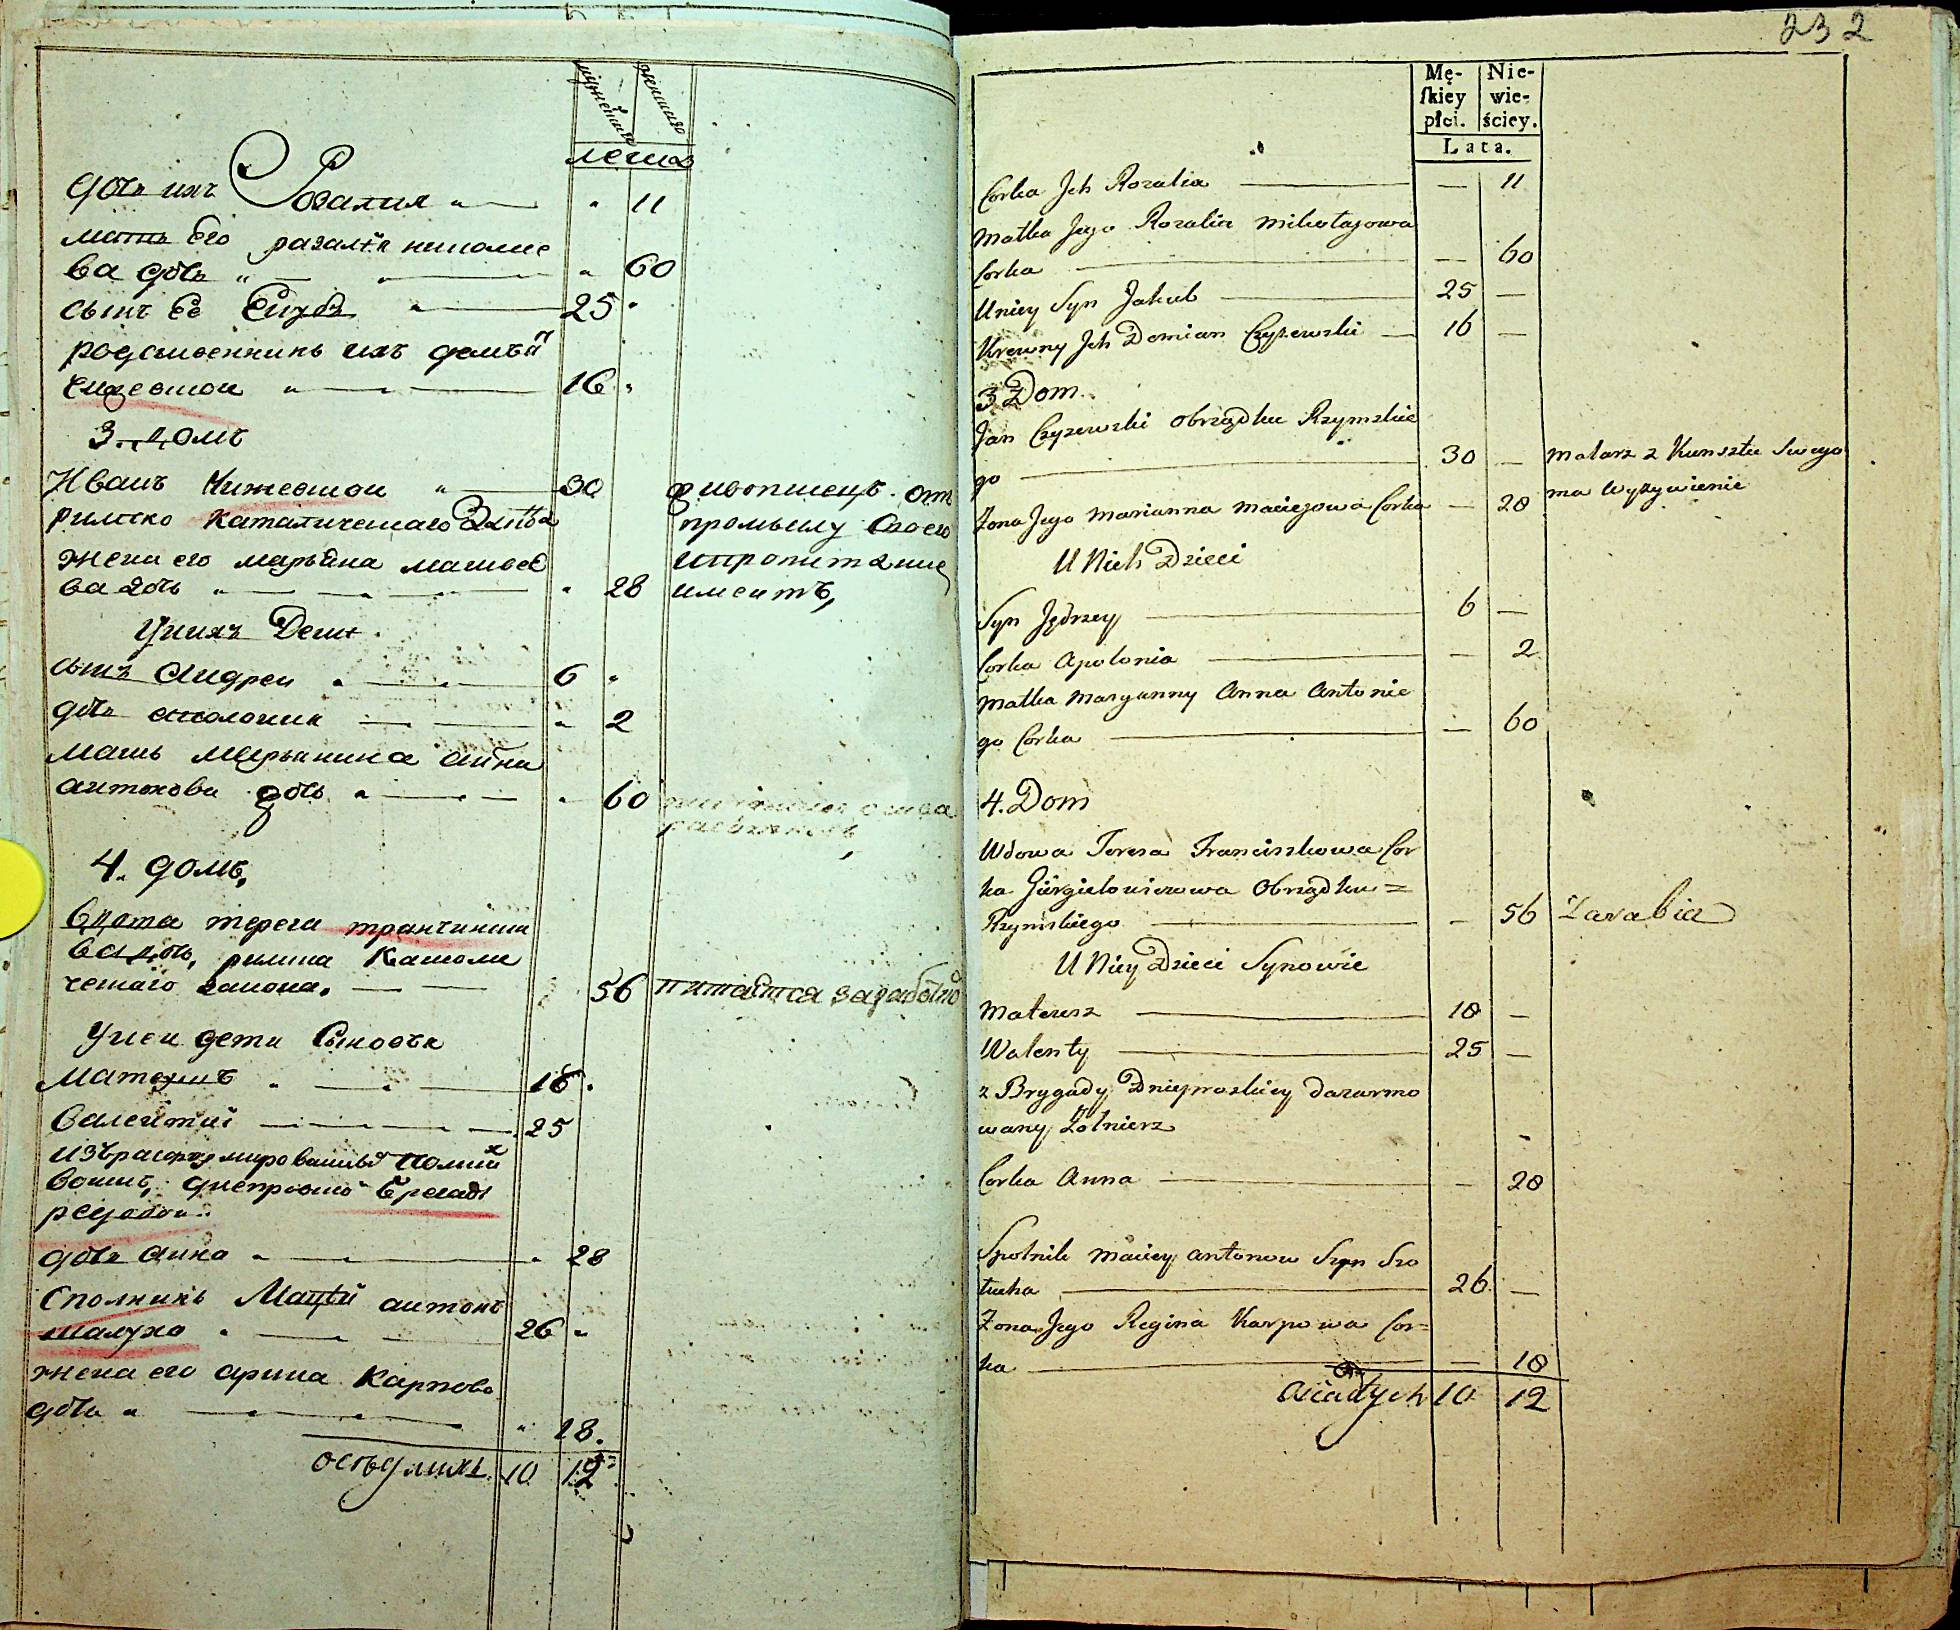 мужеска
женска
летаа
дочь ихъ Розалия 11
мать его разалiя николае
ва дочь 60
сынъ ее Якубъ 25
родственникъ ихъ демья
Чижевской 16
3. домъ
Иванъ Чижевской 30 живописецъ от
римско католическаго Закона промыслу своего
жена его марьяна матвее пропитание
ва дочь 28 имеитъ,
У нихъ Дети
сынъ Андреи 6
дочь аполония 2
мать марьянина анна
антонова дочь 60
4. домъ,
вдова тереса транчишко
ва дочь, римска Католи
ческаго закона. 56 питается заработко
У неи дети Сыновья
Матеушъ 18
Валентии 25
изъ расформированныхъ полскихъ
воискъ, днепровской Бригады
рядовой
дочь анна 28
Сполникъ Мацеи антонъ
шалухо 26
жена его арина Карпова
дочь 18.
оседлыхъ 10 12
232
Mę-
ſkiey
płci.
Nie-
wie-
ściey.
Lata.
Corka Jch Rozalia — 11
Matka Jego Rozalia Mikołajowa
Corka — 60
Uniey Syn Jakub 25 —
Krewny Jch Demian Czyżewski 16 —
3 Dom.
Jan Czyzewski obrządku Rzymskie
go 30 — Malarz z Kunsztu Swego
Zona Jego Marianna Maciejowa Corka — 28 ma Wyżywienie
U Nich Dzieci
Syn Jędrzey 6 —
Corka Apolonia — 2
Matka Maryanny Anna Antonie
go Corka — 60
4. Dom
Wdowa Teresa Franciszkowa Cor
ka Giurgielowiczowa Obrządku =
Rzymskiego — 56 Zarabia
U Niey Dzieci Synowie
Mateusz 18 —
Walenty 25 —
z Brygady Dnieproskiey dazarmo
wany Żołnierz
Corka Anna — 28
Spolnik Maciey Antonow Syn Szo
łucha 26 —
Zona Jego Regina Karpowa Cor=
ka — 18
Osiadłych 10 12